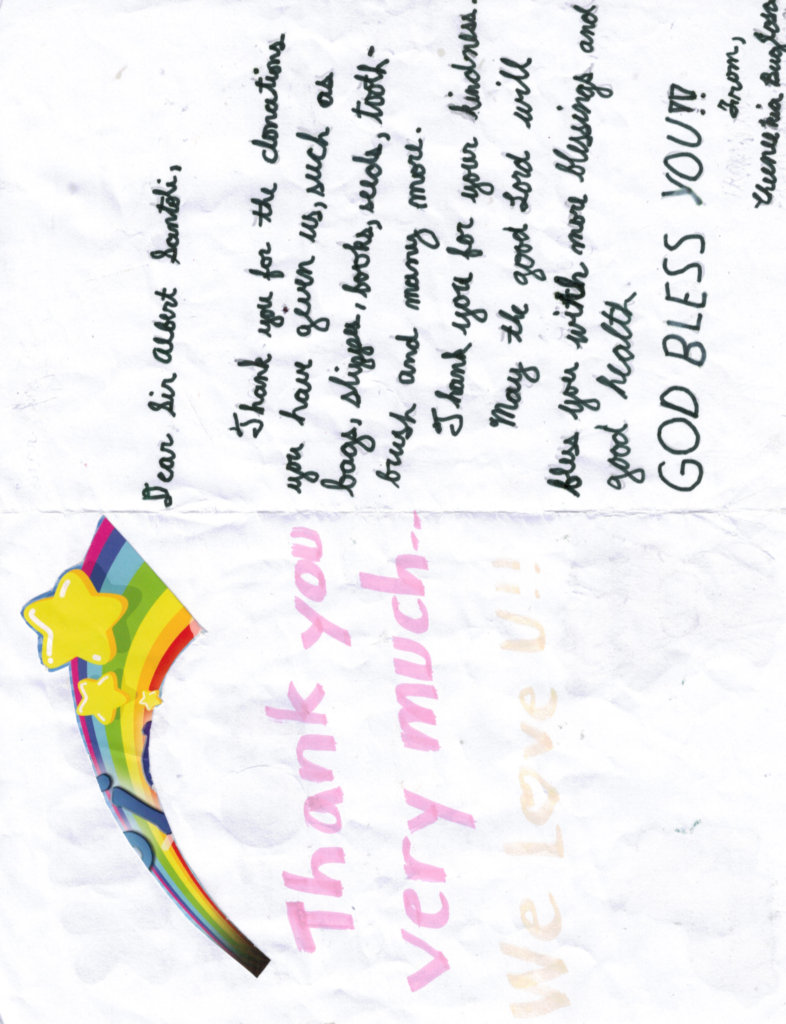 Thank you
very much--
We Love U!!
Dear Sir Albert Santoli,
Thank you for the donations
you have given us, such as
bags, slippers, books, seeds, tooth-
brush and many more.
Thank you for your kindness.
May the good Lord will
bless you with more blessings and
good health
GOD BLESS YOU!!!
From,